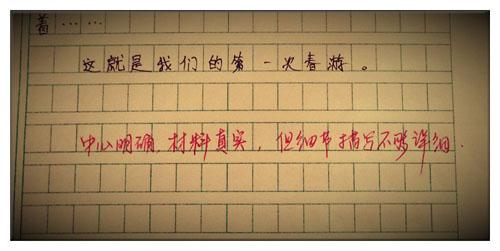 着……
这就是我们的第一次春游。
中心明确，材料真实，但细节描写不够详细.